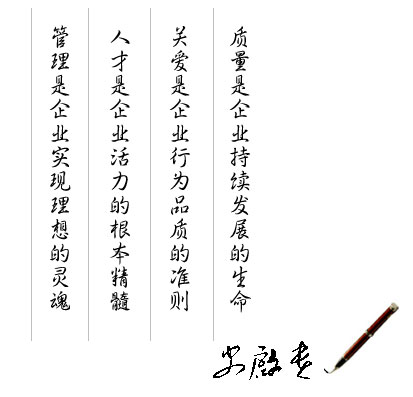 质量是企业持续发展的生命
关爱是企业行为品质的准则
人才是企业活力的根本精髓
管理是企业实现理想的灵魂